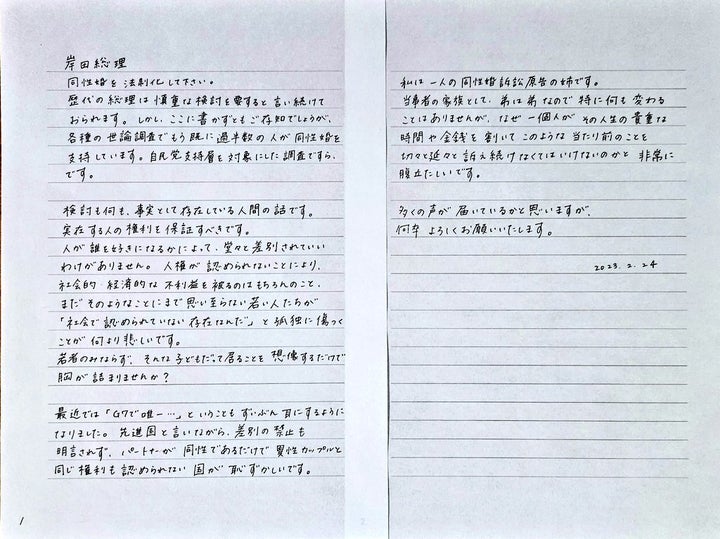 岸田総理
同性婚を法制化して下さい。
歴代の総理は慎重な検討を要すると言い続けて
おられます。しかし、ここに書かずともご存知でしょうが、
各種の世論調査でもう既に過半数の人が同性婚を
支持しています。自民党支持層を対象にした調査ですら、
です。
検討も何も、事実として存在している人間の話です。
実在する人の権利を保証すべきです。
人が誰を好きになるかによって、堂々と差別されていい
わけがありません。人権が認められないことにより、
社会的・経済的な不利益を被るのはもちろんのこと、
まだそのようなことにまで思い至らない若い人たちが
「社会で認められていない存在なんだ」と孤独に傷つく
ことが何より悲しいです。
若者のみならず、そんな子どもだって居ることを想像するだけで
胸が詰まりませんか?
最近では「G7で唯一…」ということもずいぶん耳にするように
なりました。先進国と言いながら、差別の禁止も
明言されず、パートナーが同性であるだけで異性カップルと
同じ権利も認められない国が恥ずかしいです。
1
私は一人の同性婚訴訟原告の姉です。
当事者の家族として、弟は弟なので特に何も変わる
ことはありませんが、なぜ一個人がその人生の貴重な
時間や金銭を割いてこのような当たり前のことを
切々と延々と訴え続けなくてはいけないのかと非常に
腹立たしいです。
多くの声が届いているかと思いますが、
何卒よろしくお願いいたします。
2023.2.24
2